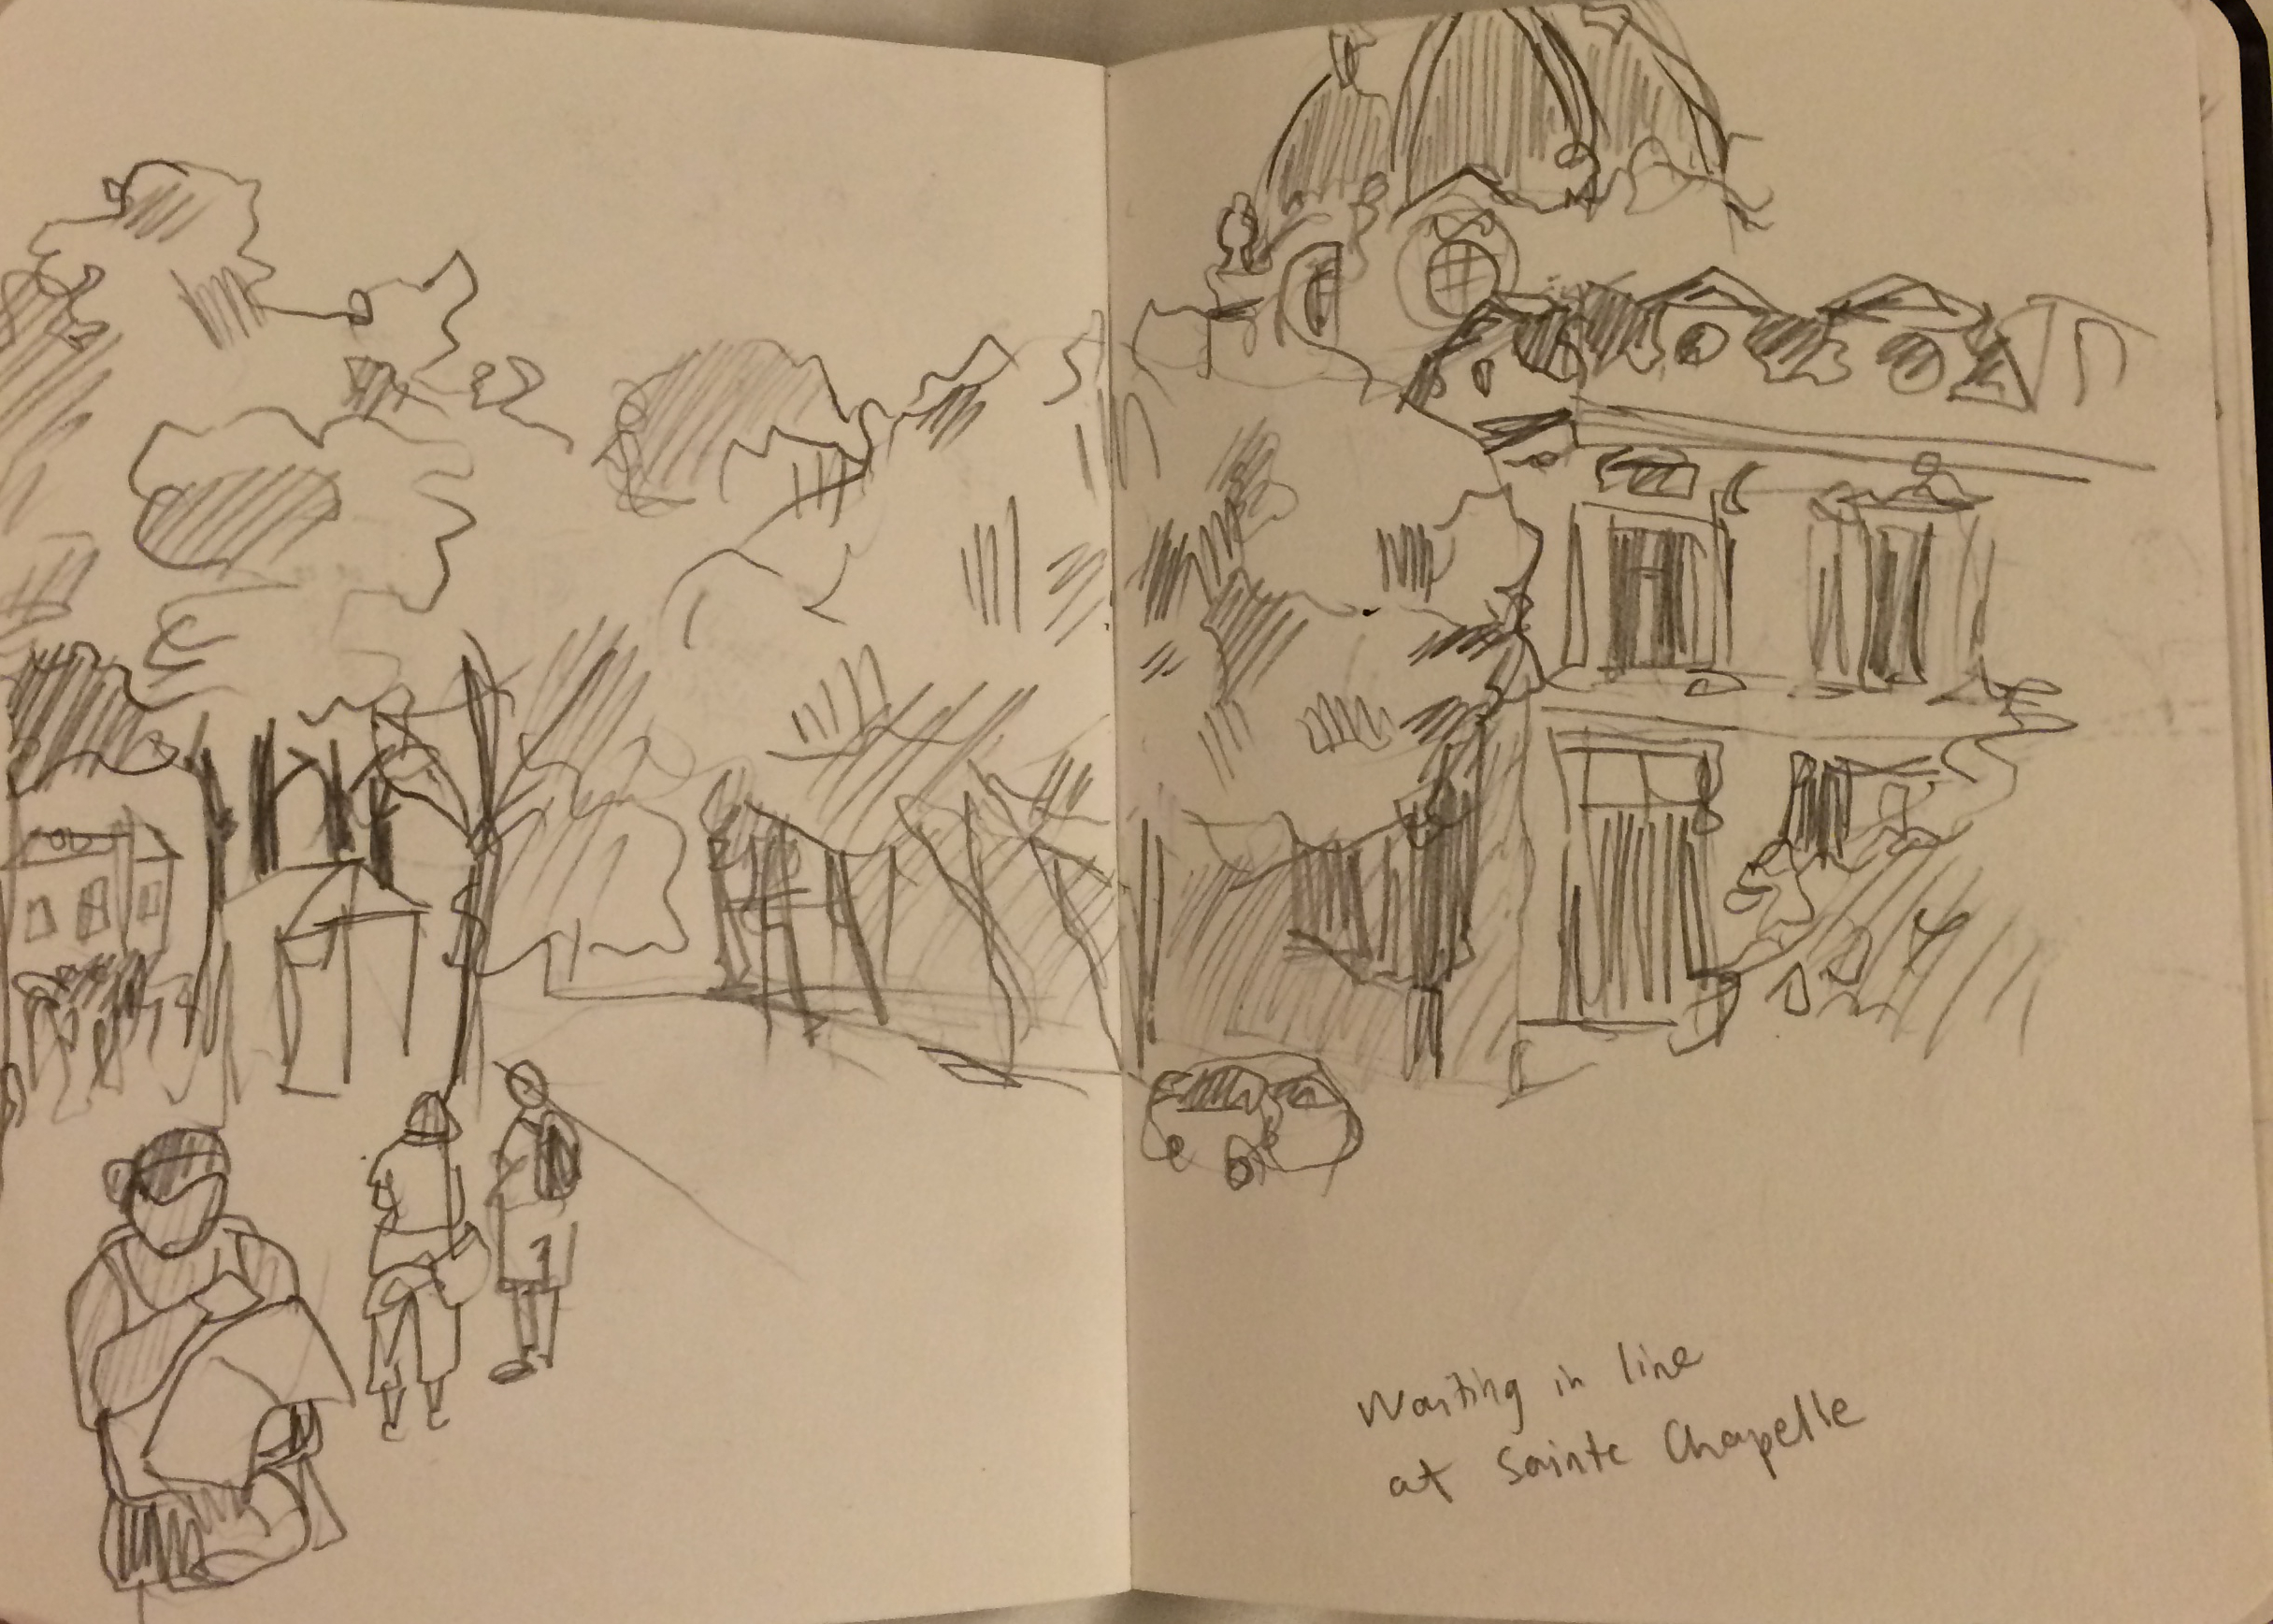 Waiting in line
at Sainte Chapelle